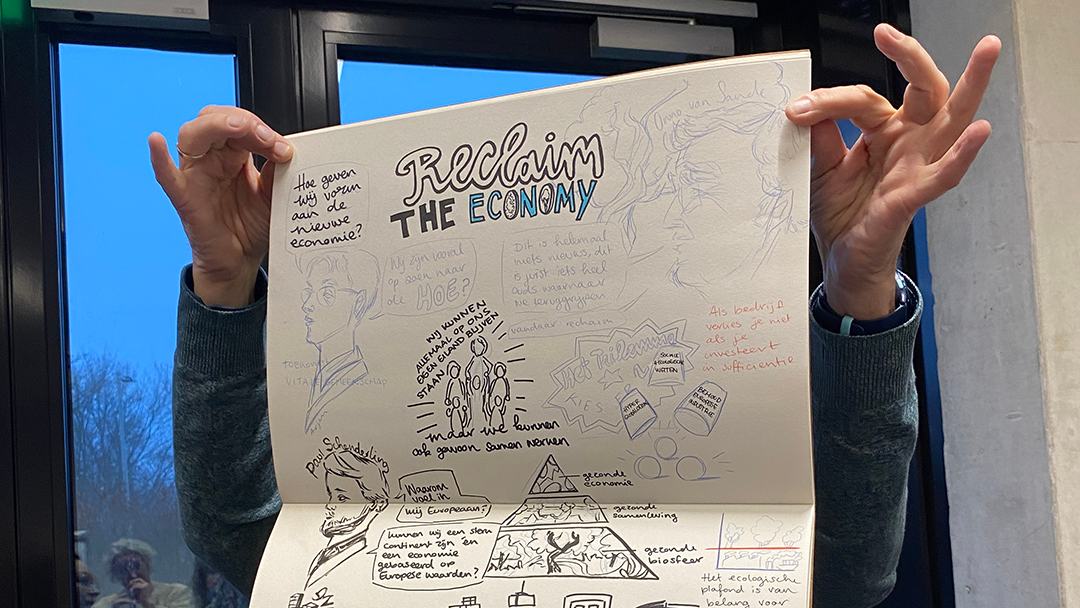 Reclaim
THE ECONOMY
Onno van Sande
Hoe geven
wij vorm
aan de
nieuwe
economie?
Wij zijn vooral
op zoek naar
de HOE?
Dit is helemaal
niets nieuws, dit
is juist iets heel
ouds waarnaar
we teruggrijpen
vandaar reclaim
VITALE GEMEENSCHAP
WIJ KUNNEN
ALLEMAAL OP ONS
EIGEN EILAND BLIJVEN
STAAN
maar we kunnen
ook gewoon samen werken
Het Trilemma
KIES
SOCIALE
& ECOLOGISCHE
WETTEN
HYPER
BEHOUD
EUROPESE
INDUSTRIE
Als bedrijf
verlies je niet
als je
investeert
in sufficientie
Paul Schenderling
Waarom
voel ik
mij Europeaan?
kunnen wij een stem
continent zijn en
een economie
gebaseerd op
Europese waarden?
gezonde
economie
gezonde
samenleving
gezonde
biosfeer
Het ecologische
plafond is van
belang voor